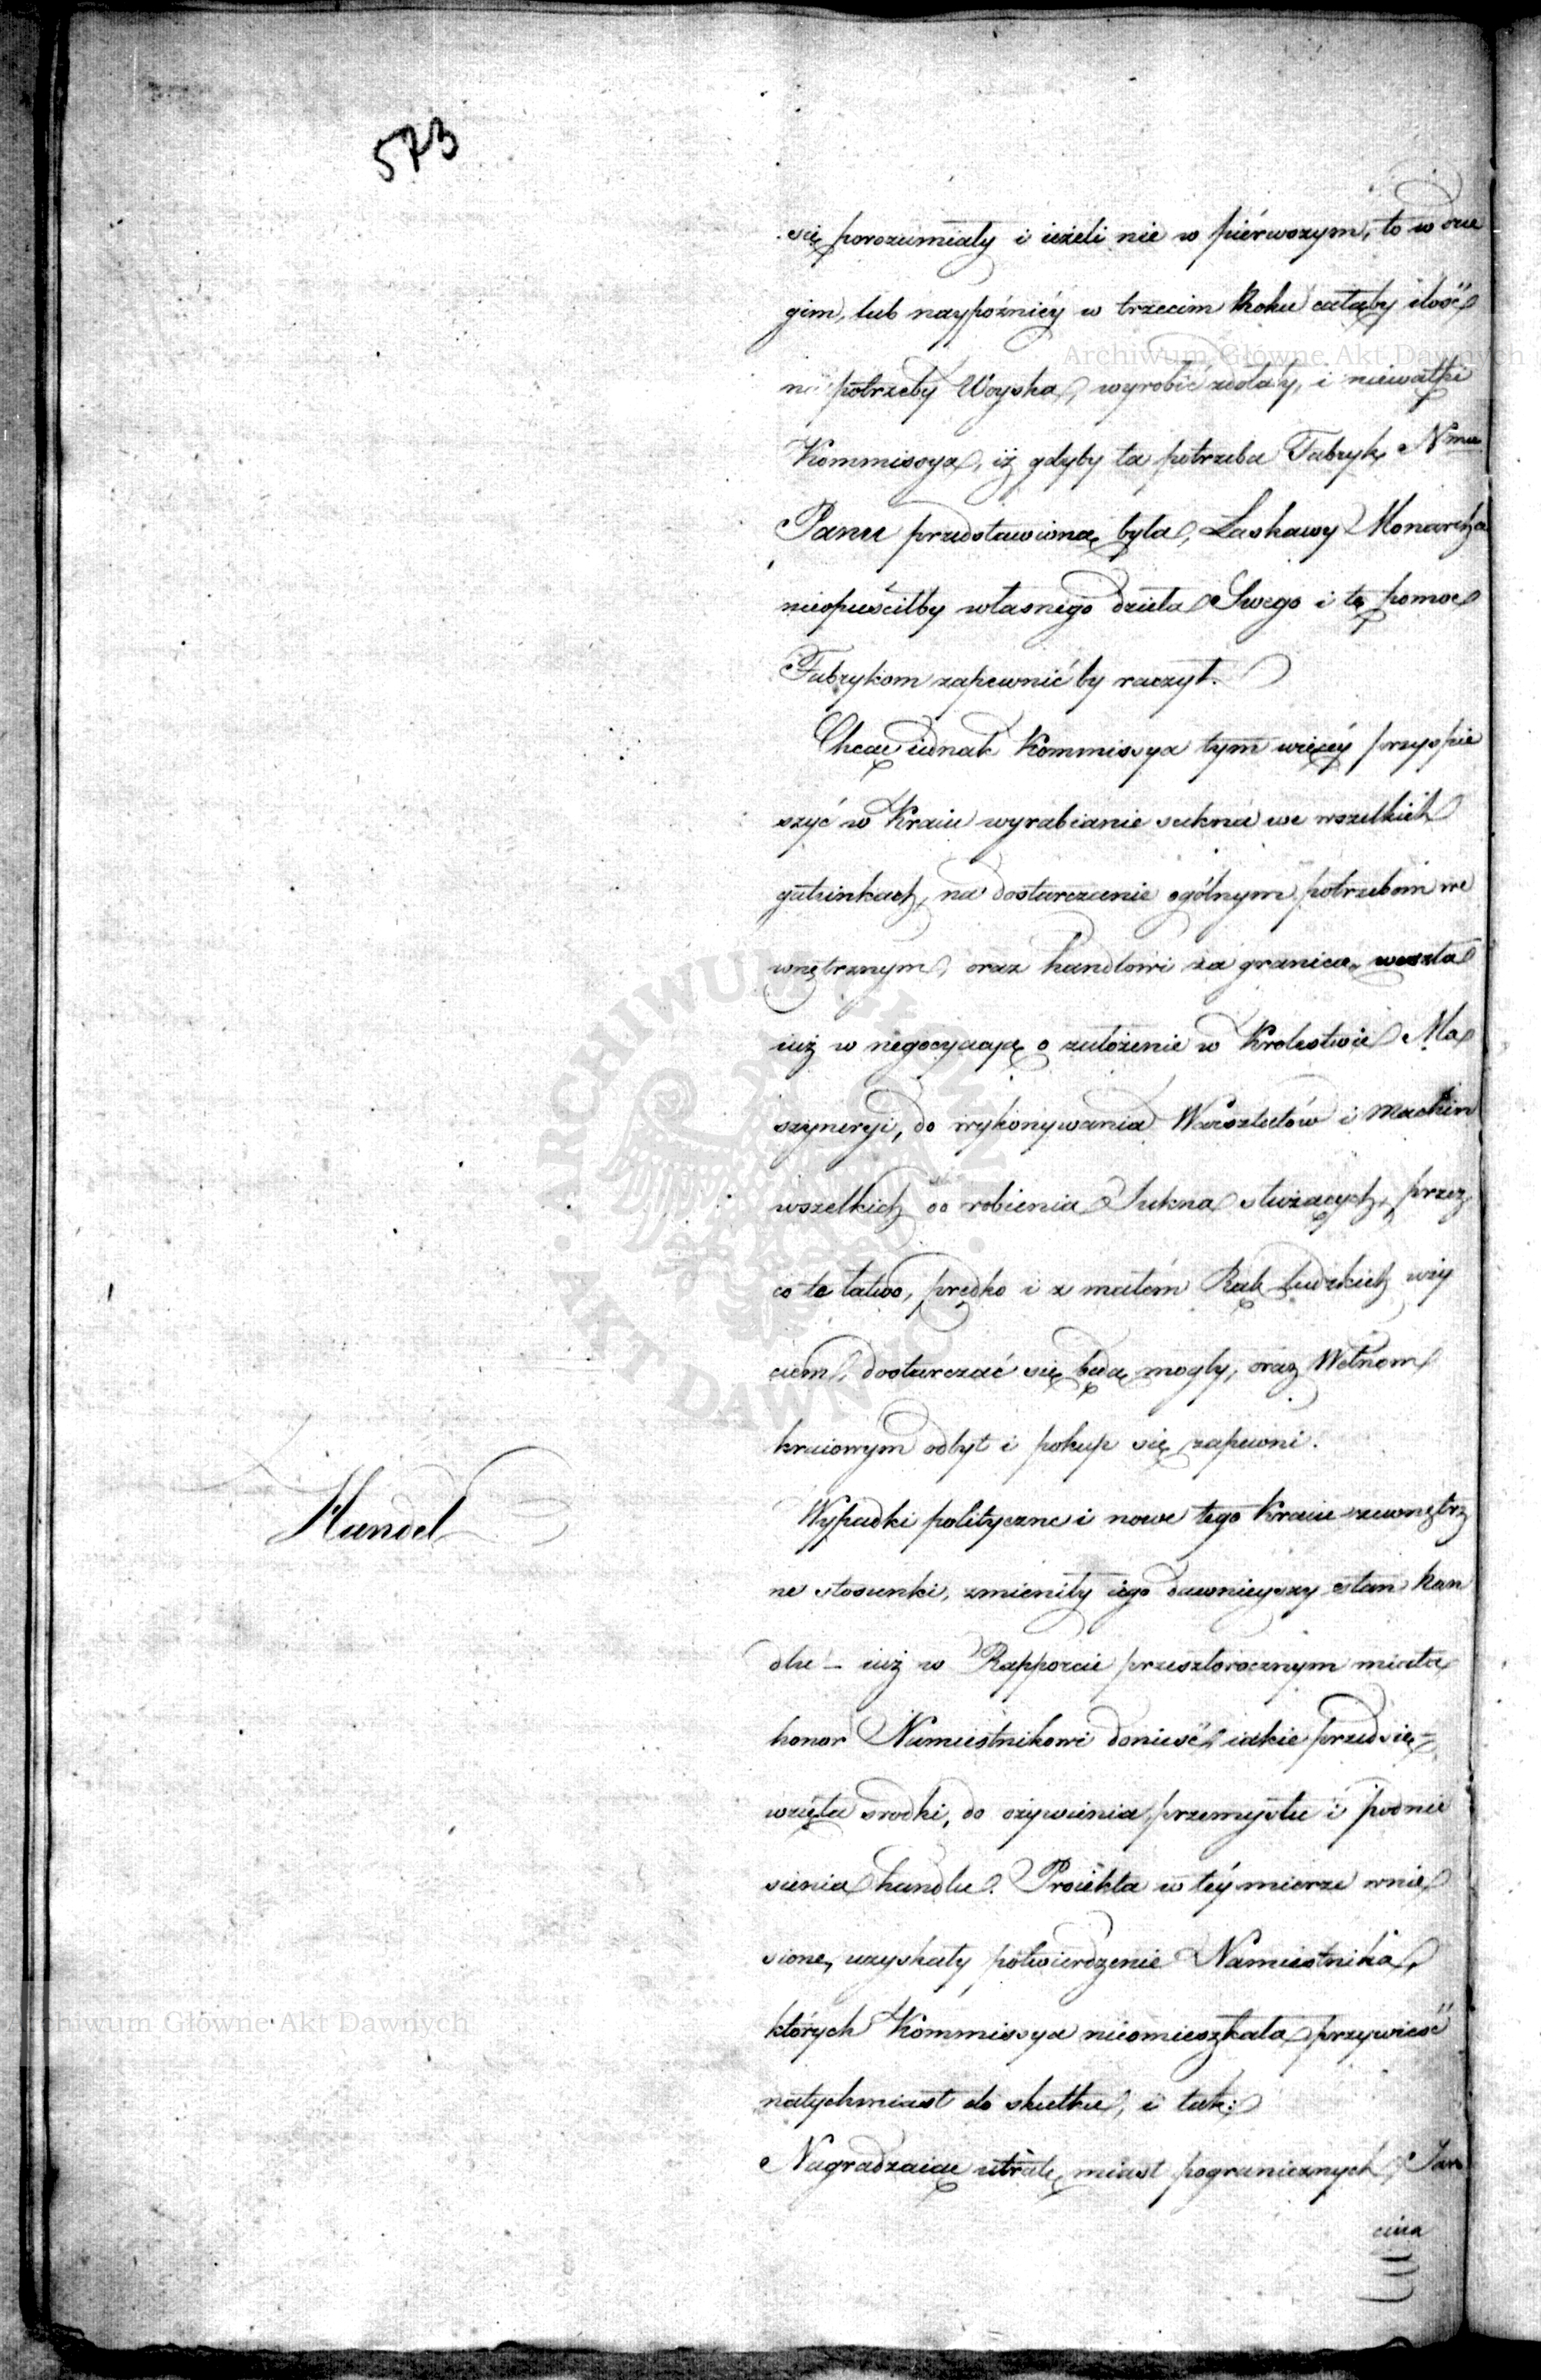 573
się porozumiały i ieżeli nie w piérwszym, to w dru
gim, lub naypóźniéy w trzecim Roku całąby ilość
na potrzeby Woyska, wyrobić zdołały, i niewątpi
Kommissya, iż gdyby ta potrzeba Fabryk Nmu
Panu przedstawioną była, Łaskawy Monarcha
nieopuściłby własnego dzieła Swego i tę pomoc
Fabrykom zapewnić by raczył.
Chcąc iednak Kommissya tym więcéy przyspie
szyć w Kraiu wyrabianie sukna we wszelkich
gatunkach, na dostarczanie ogólnym potrzebom we
wnętrznym, oraz handlowi za granicą, weszła
iuż w negocyacyą o założenie w Krolestwie Ma
szyneryi, do wykonywania Warsztatów i Machin
wszelkich do robienia Sukna służących, przez
co te łatwo, prędko i z małém Rąk Ludzkich uży
ciem, dostarczać się będą mogły, oraz Wełnom
kraiowym odbyt i pokup się zapewni.
Handel
Wypadki polityczne i nowe tego Kraiu zewnętrz
ne stosunki, zmieniły iego dawnieyszy stan han
dlu – iuż w Rapporcie przeszłorocznym miała
honor Namiestnikowi donieść iakie przedsię=
wzięła srodki, do ożywienia przemysłu i podnie
sienia handlu. Proiekta w téy mierze wnie
sione, uzyskały potwierdzenie Namiestnika,
których Kommissya nieomieszkała przywieść
natychmiast do skutku, i tak:
Nagradzaiąc utratę miast pogranicznych, Jar
Archiwum Główne Akt Dawnych
Archiwum Główne Akt Dawnych
ARCHIWUM GŁÓWNE AKT DAWNYCH